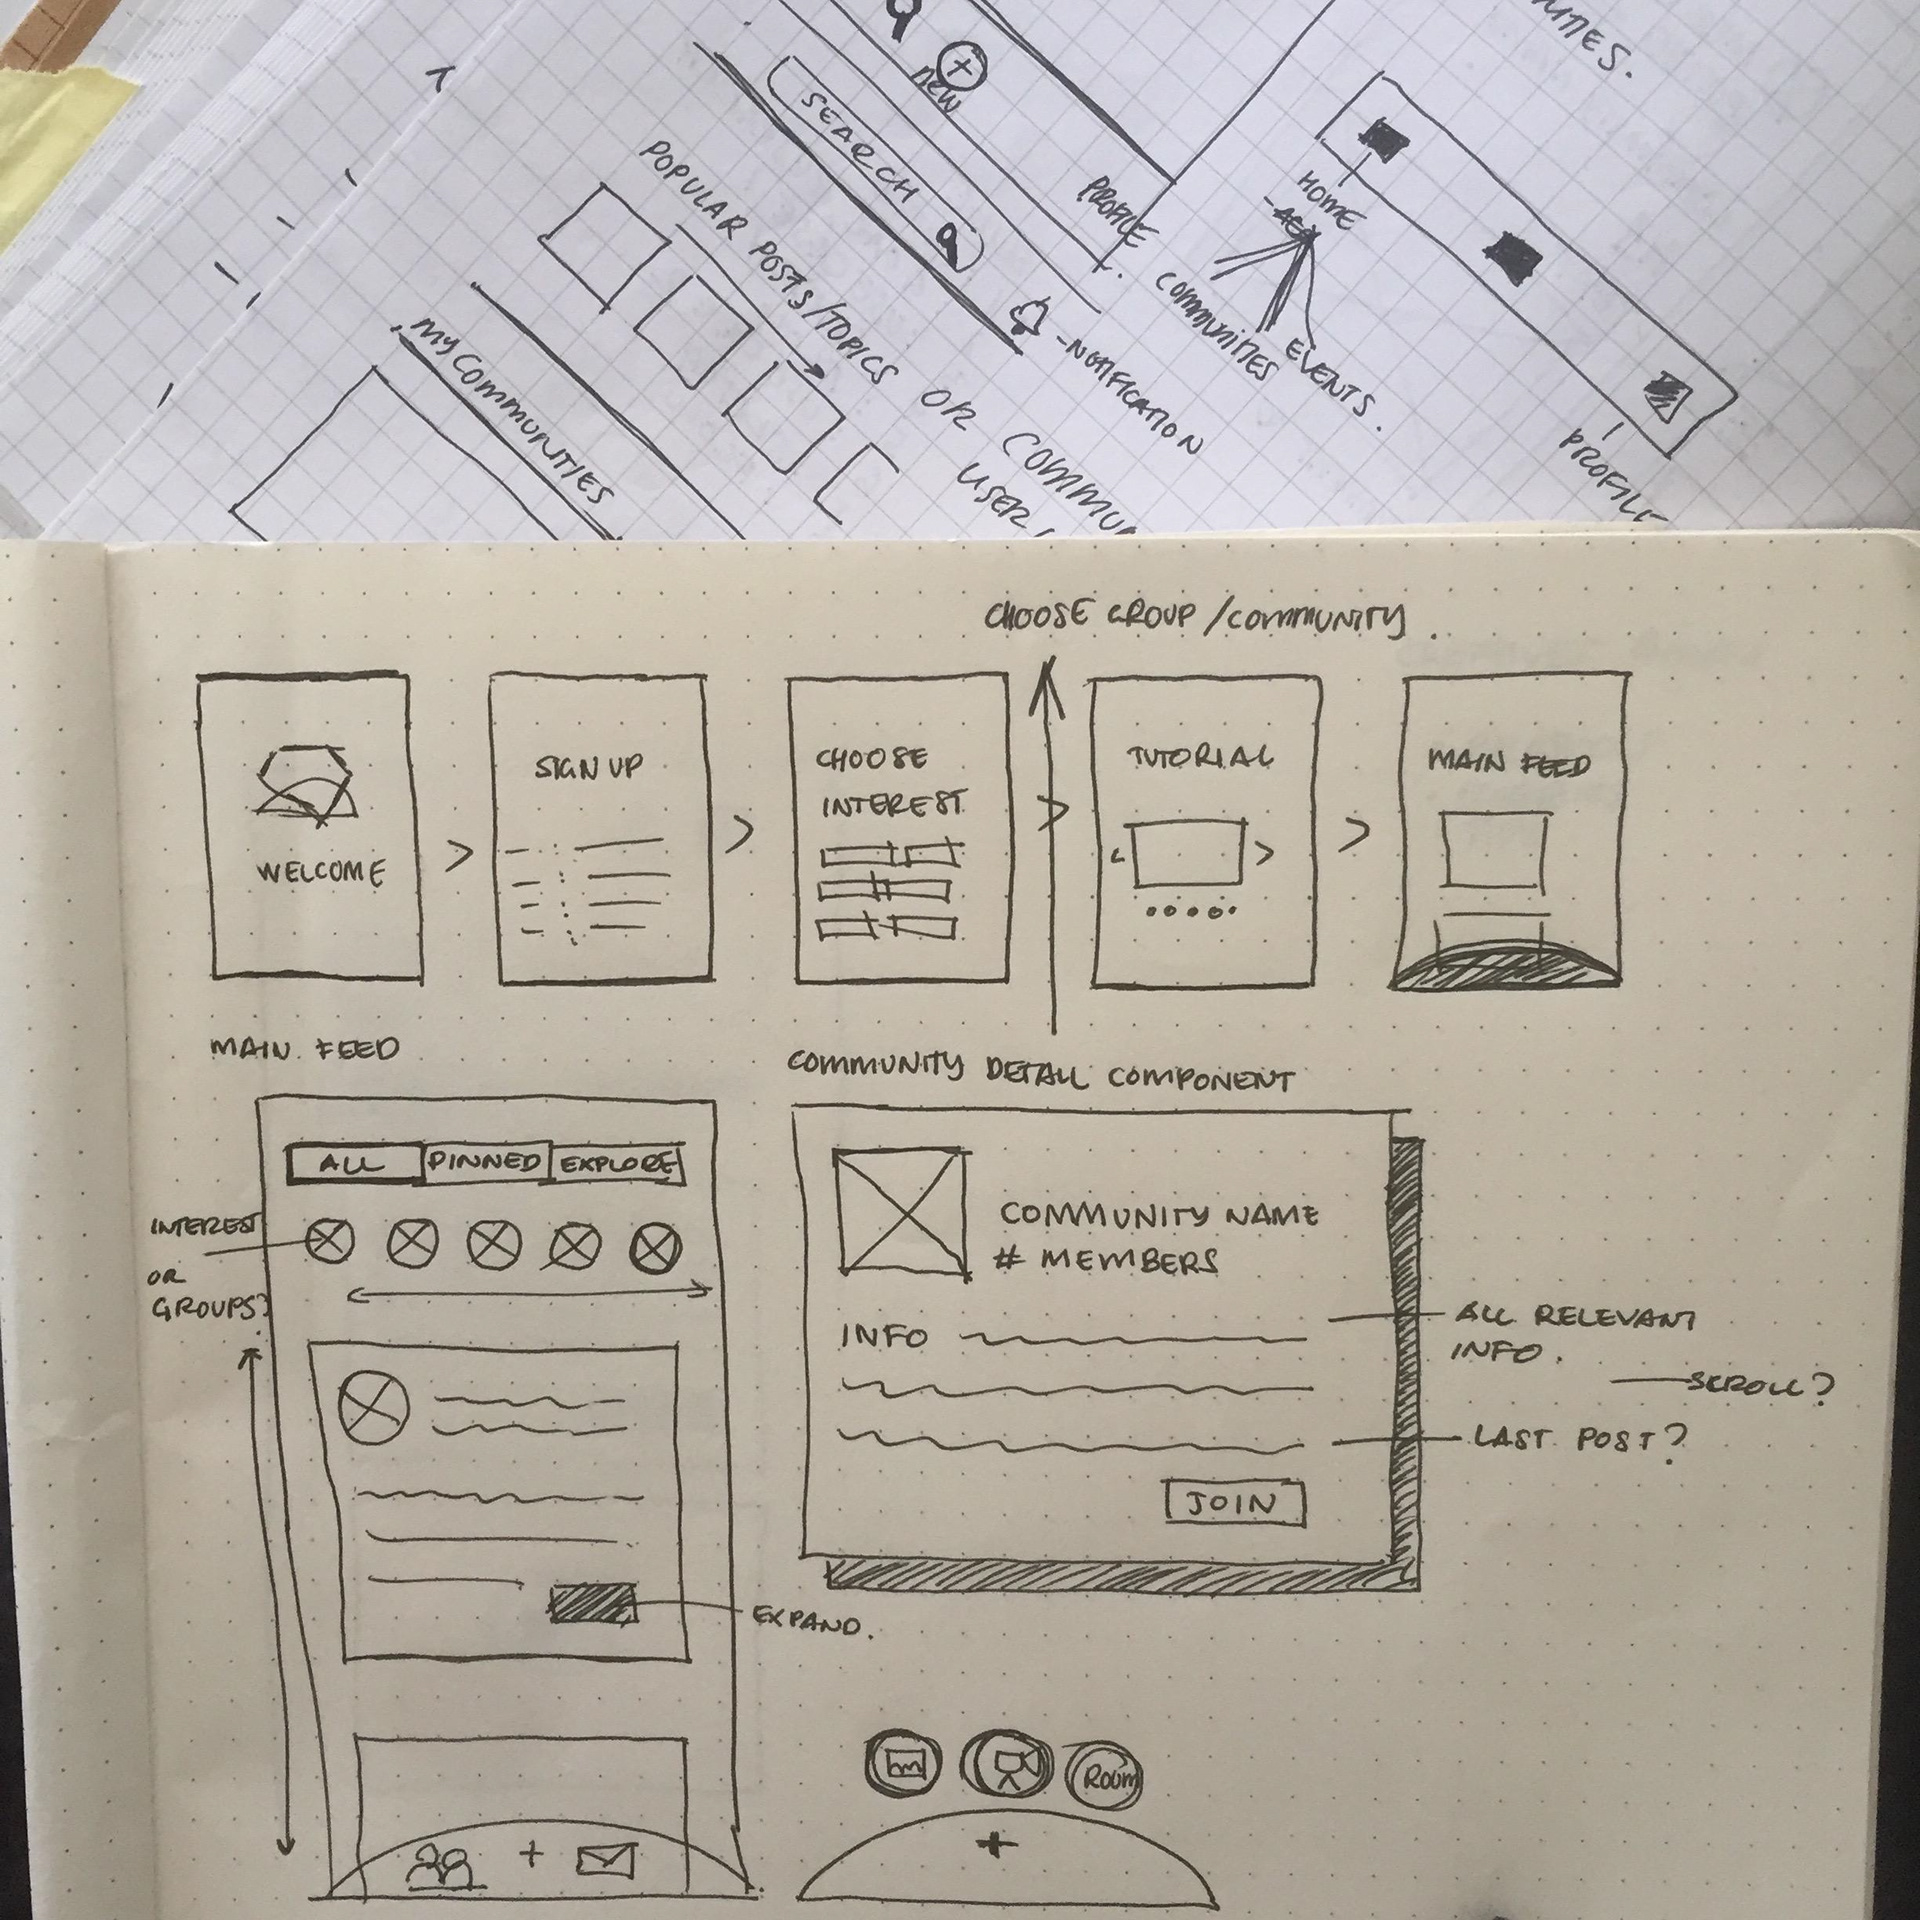 NEW
SEARCH
PROFILE
POPULAR POSTS/TOPICS OR
USER
-NOTIFICATION
MY COMMUNTIES
HOME
COMMUNITIES
EVENTS.
PROFILE
CHOOSE GROUP/COMMUNITY.
WELCOME
SIGN UP
CHOOSE
INTEREST
TUTORIAL
MAIN FEED
MAIN FEED
ALL PINNED EXPLORE
INTEREST
OR
GROUPS?
EXPAND.
COMMUNITY DETAIL COMPONENT
COMMUNITY NAME
# MEMBERS
INFO
ALL RELEVANT
INFO.
SCROLL?
LAST POST?
JOIN
+
Room
+